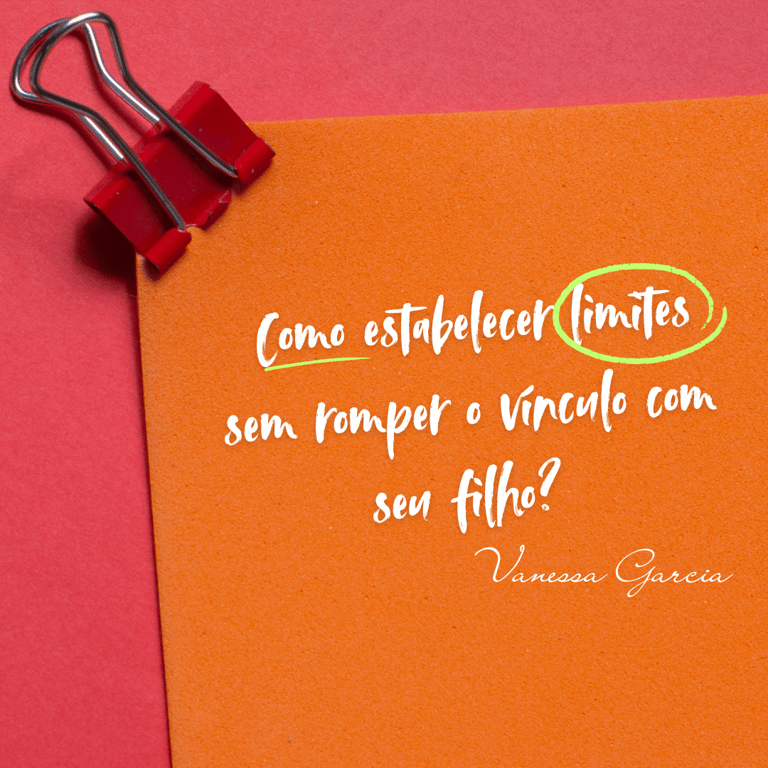 Como estabelecer limites
sem romper o vínculo com
seu filho?
Vanessa Garcia